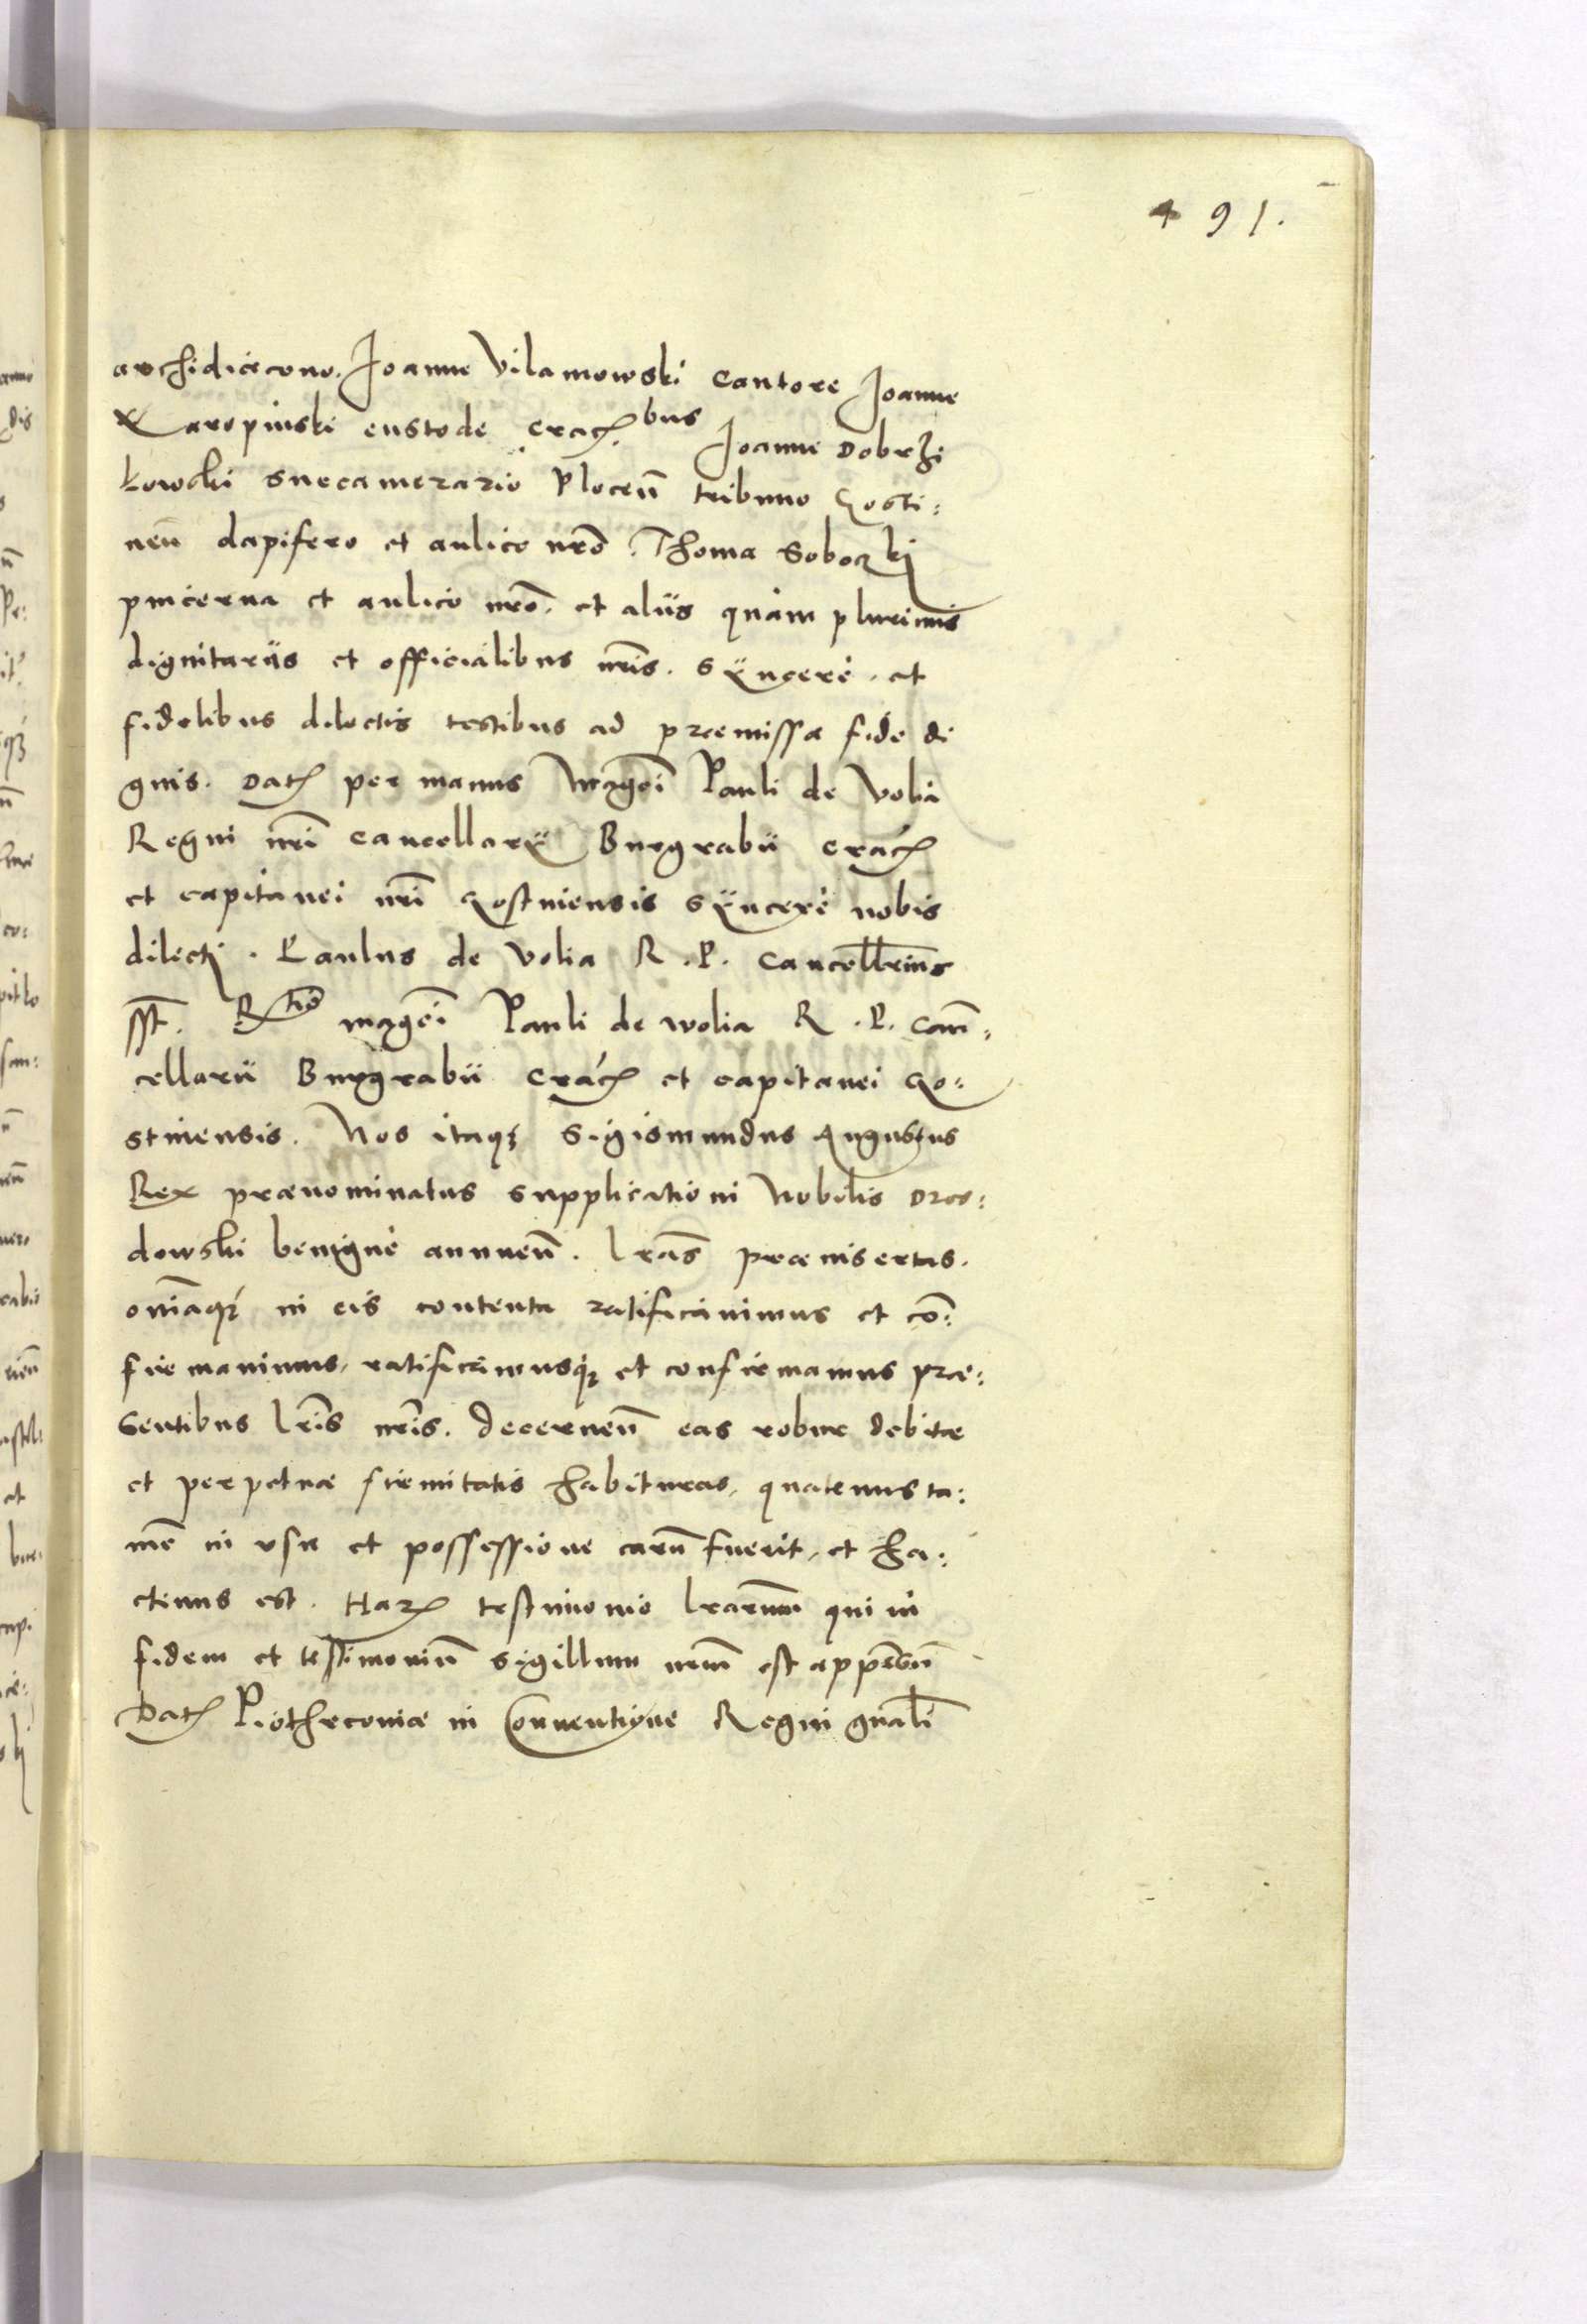 491.
archidiacono. Joanne Vilamowski cantore Joanne
Karopinski custode crac.bus Joanne Dobrzi
kowski succamerario Plocen̄ tribuno Gosti:
nen̄ dapifero et aulico nr̄o. Thoma Soboczkj
pincerna et aulico nr̄o. et alijs quàm plurimis
dignitarijs et officialibus nr̄is. sÿncerè. et
fidelibus dilectis testibus ad præmissa fide di
gnis. Dat. per manus Maḡci Pauli de Volia
Regni nr̄i cancellarÿ Burgrabij crac.
et capitanei nr̄i Gostinensis sÿncerè nobis
dilecti. Paulus de Volia R. P. cancellr̄ius
sst. R̄tio maḡci Pauli de wolia R. P. can̄:
cellarij Burgrabij crac. et capitanei Go:
stinensis. Nos itaqȝ Sigismundus Augustus
Rex prænominatus supplicationi Nobilis Dro:
dowski benignè annuen̄. lr̄as præinsertas.
omīaqȝ in eis contenta ratificauimus et cō:
firmauimus, ratificamusqȝ et confirmamus præ:
sentibus lr̄is nr̄is. Decernen̄ eas robur debitæ
et perpetuæ firmitatis habituras, quatenus ta:
mē in vsu et possessione earū fuerit, et ha:
ctenus est. Harȝ testimonio lr̄arum qui in
fidem et testimoniū sigillum nr̄um est appēsū
Dat. Piotrcouiæ in Conuentione Regni gn̄ali